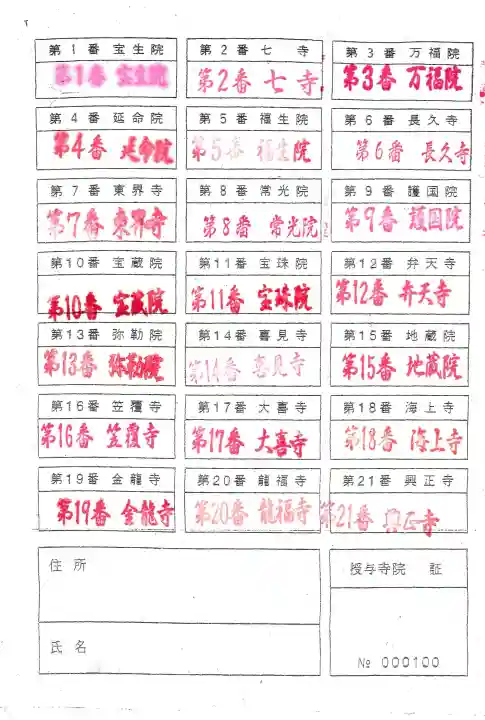 第1番 宝生院 第2番 七 寺 第3番 万福院
第1番 宝生院 第2番 七寺 第3番 万福院
第4番 延命院 第5番 福生院 第6番 長久寺
第4番 延命院 第5番 福生院 第6番 長久寺
第7番 東界寺 第8番 常光院 第9番 護国院
第7番 東界寺 第8番 常光院 第9番 護国院
第10番 宝蔵院 第11番 宝珠院 第12番 弁天寺
第10番 宝蔵院 第11番 宝珠院 第12番 弁天寺
第13番 弥勒院 第14番 喜見寺 第15番 地蔵院
第13番 弥勒院 第14番 喜見寺 第15番 地蔵院
第16番 笠覆寺 第17番 大喜寺 第18番 海上寺
第16番 笠覆寺 第17番 大喜寺 第18番 海上寺
第19番 金龍寺 第20番 龍福寺 第21番 興正寺
第19番 金龍寺 第20番 龍福寺 第21番 興正寺
住所
授与寺院 証
氏名
№ 000100